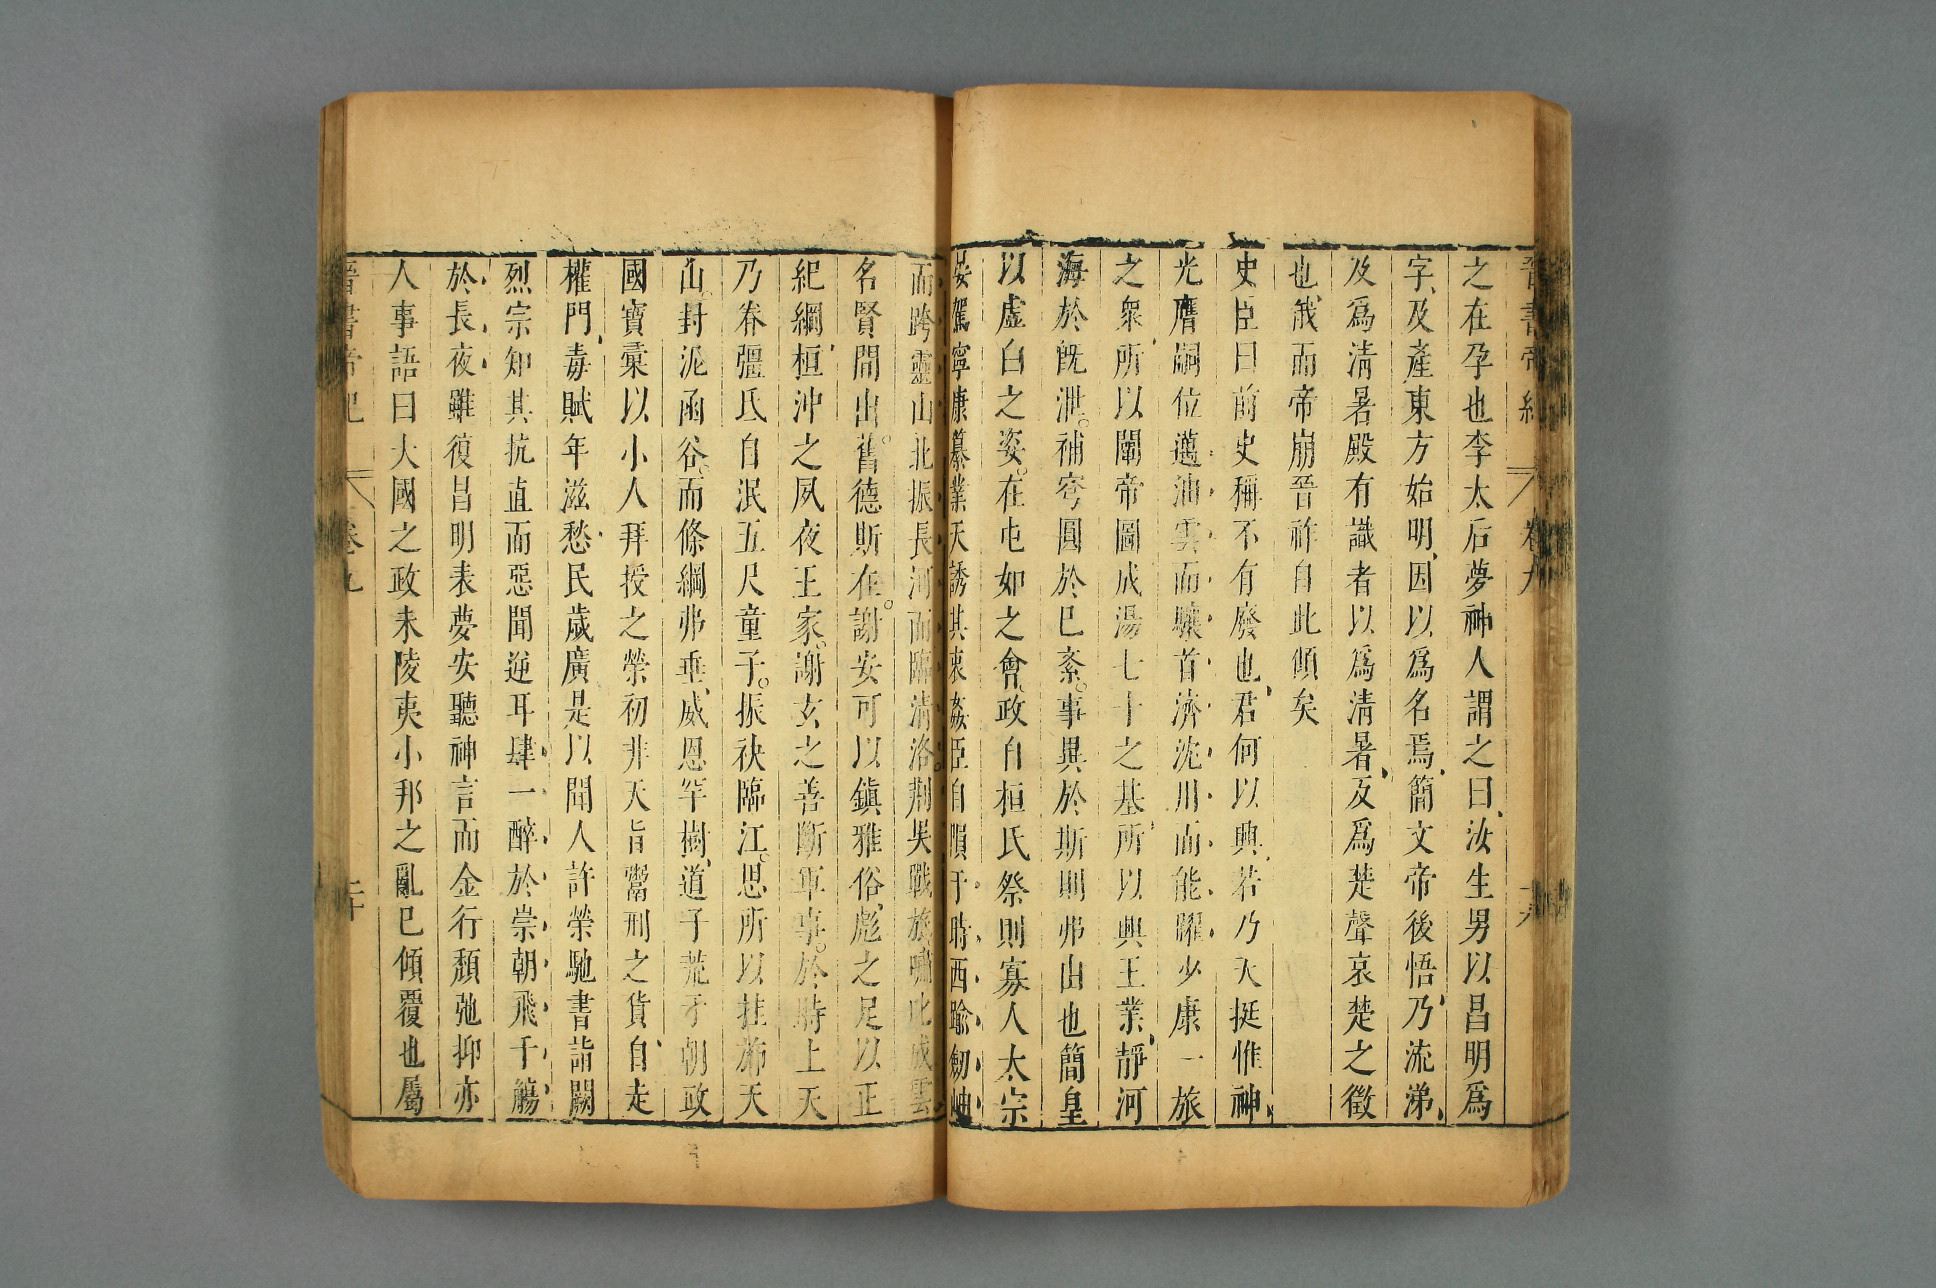 晉書帝紀 卷九
之在孕也李太后夢神人謂之曰汝生男以昌明爲
字及產東方始明因以爲名焉簡文帝後悟乃流涕
及爲清暑殿有識者以爲清暑反爲楚聲哀楚之徵
也俄而帝崩晉祚自此傾矣
史臣曰前史稱不有廢也君何以興若乃天挺惟神
光膺嗣位邁油雲而驤首濟沈川而能躍少康一旅
之衆所以闡帝圖成湯七十之基所以興王業靜河
海於旣泄補穹圓於已紊事異於斯則弗由也簡皇
以虛白之姿在屯如之會政自桓氏祭則寡人太宗
晏駕寧康纂業天誘其衷姦臣自隕于時西踰劒岫
而跨靈山北振長河而臨清洛荊吳戰旅嘯叱成雲
名賢間出舊德斯在謝安可以鎭雅俗彪之足以正
紀綱桓沖之夙夜王家謝玄之善斷軍事於時上天
乃眷彊氐自泯五尺童子振袂臨江思所以挂斾天
山封泥函谷而條綱弗垂威恩罕樹道子荒乎朝政
國寶彙以小人拜授之榮初非天旨鬻刑之貨自走
權門毒賦年滋愁民歲廣是以聞人許榮馳書詣闕
烈宗知其抗直而惡聞逆耳肆一醉於崇朝飛千觴
於長夜雖復昌明表夢安聽神言而金行頹弛抑亦
人事語曰大國之政未陵夷小邦之亂已傾覆也屬
晉書帝紀 卷九 二十